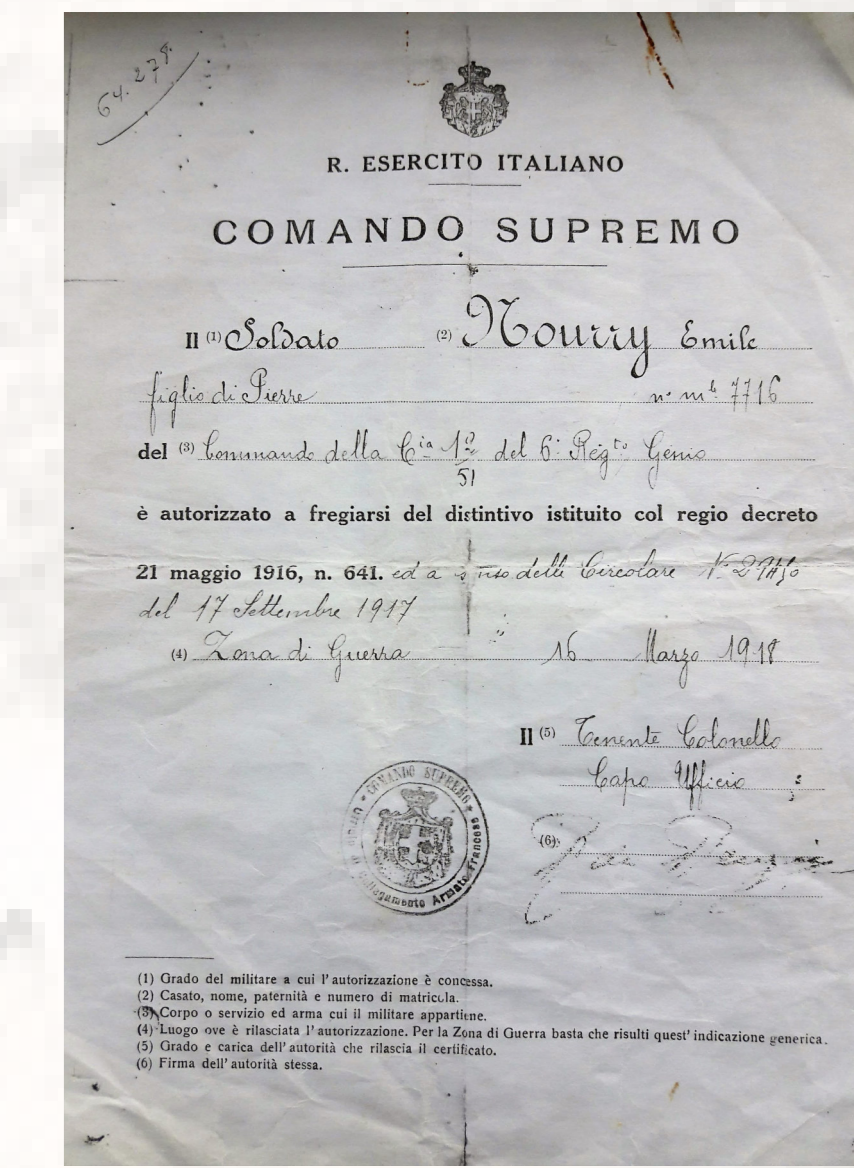 64.278.
R. ESERCITO ITALIANO
COMANDO SUPREMO
Il (1) Soldato (2) Nourry Emile
figlio di Pierre n° mle 7716
del (3) Commando della Cia 1a/51 del 6° Regto Genio
è autorizzato a fregiarsi del distintivo istituito col regio decreto
21 maggio 1916, n. 641. ed a delle Circolare
del 17 Settembre 1917
(4) Zona di Guerra 16 Marzo 1918
Il (5) Tenente Colonello
Capo Ufficio
COMANDO SUPREMO
Collegamento Armata Francese
(6)
(1) Grado del militare a cui l'autorizzazione è concessa.
(2) Casato, nome, paternità e numero di matricola.
(3) Corpo o servizio ed arma cui il militare appartiene.
(4) Luogo ove è rilasciata l'autorizzazione. Per la Zona di Guerra basta che risulti quest'indicazione generica.
(5) Grado e carica dell'autorità che rilascia il certificato.
(6) Firma dell'autorità stessa.